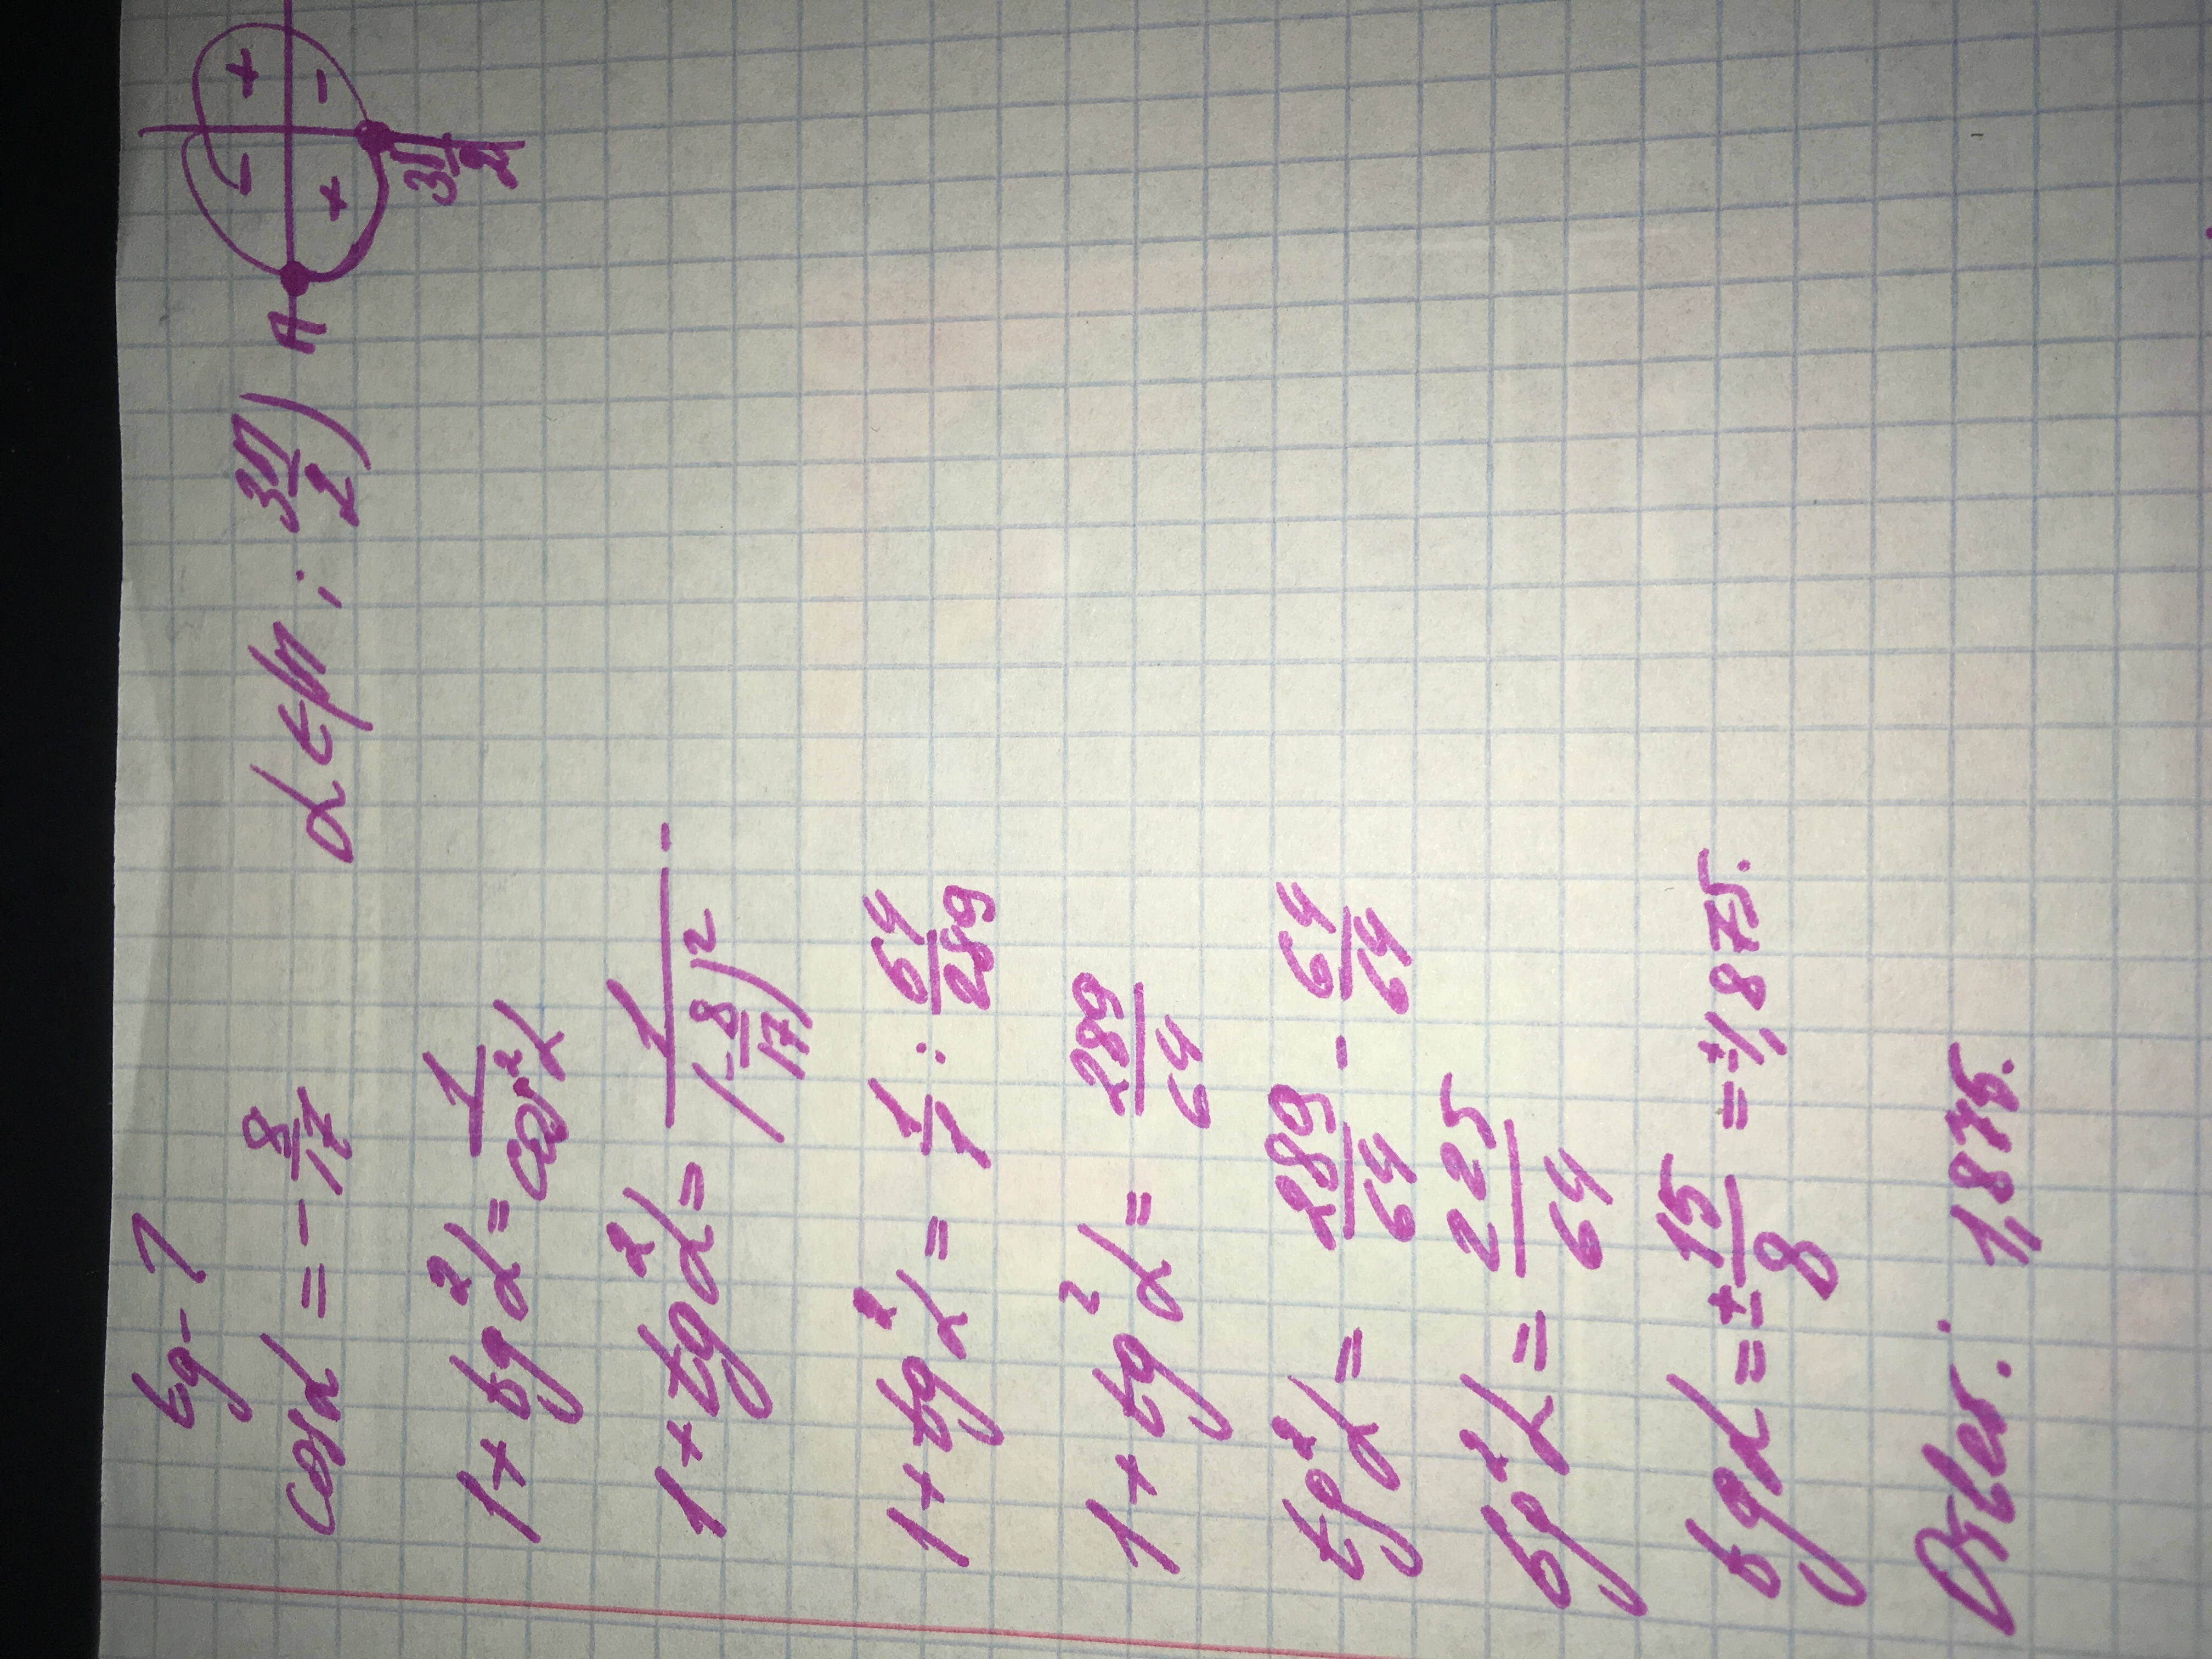 tg - ?
cos α = - 8/17 α ∈ (π ; 3π/2) π + - - + 3π/2
1 + tg² α = 1/cos² α
1 + tg² α = 1/(-8/17)² .
1 + tg² α = 1/1 : 64/289
1 + tg² α = 289/64
tg² α = 289/64 - 64/64
tg² α = 225/64
tg α = ± 15/8 = ± 1,875.
Ответ: 1,875.